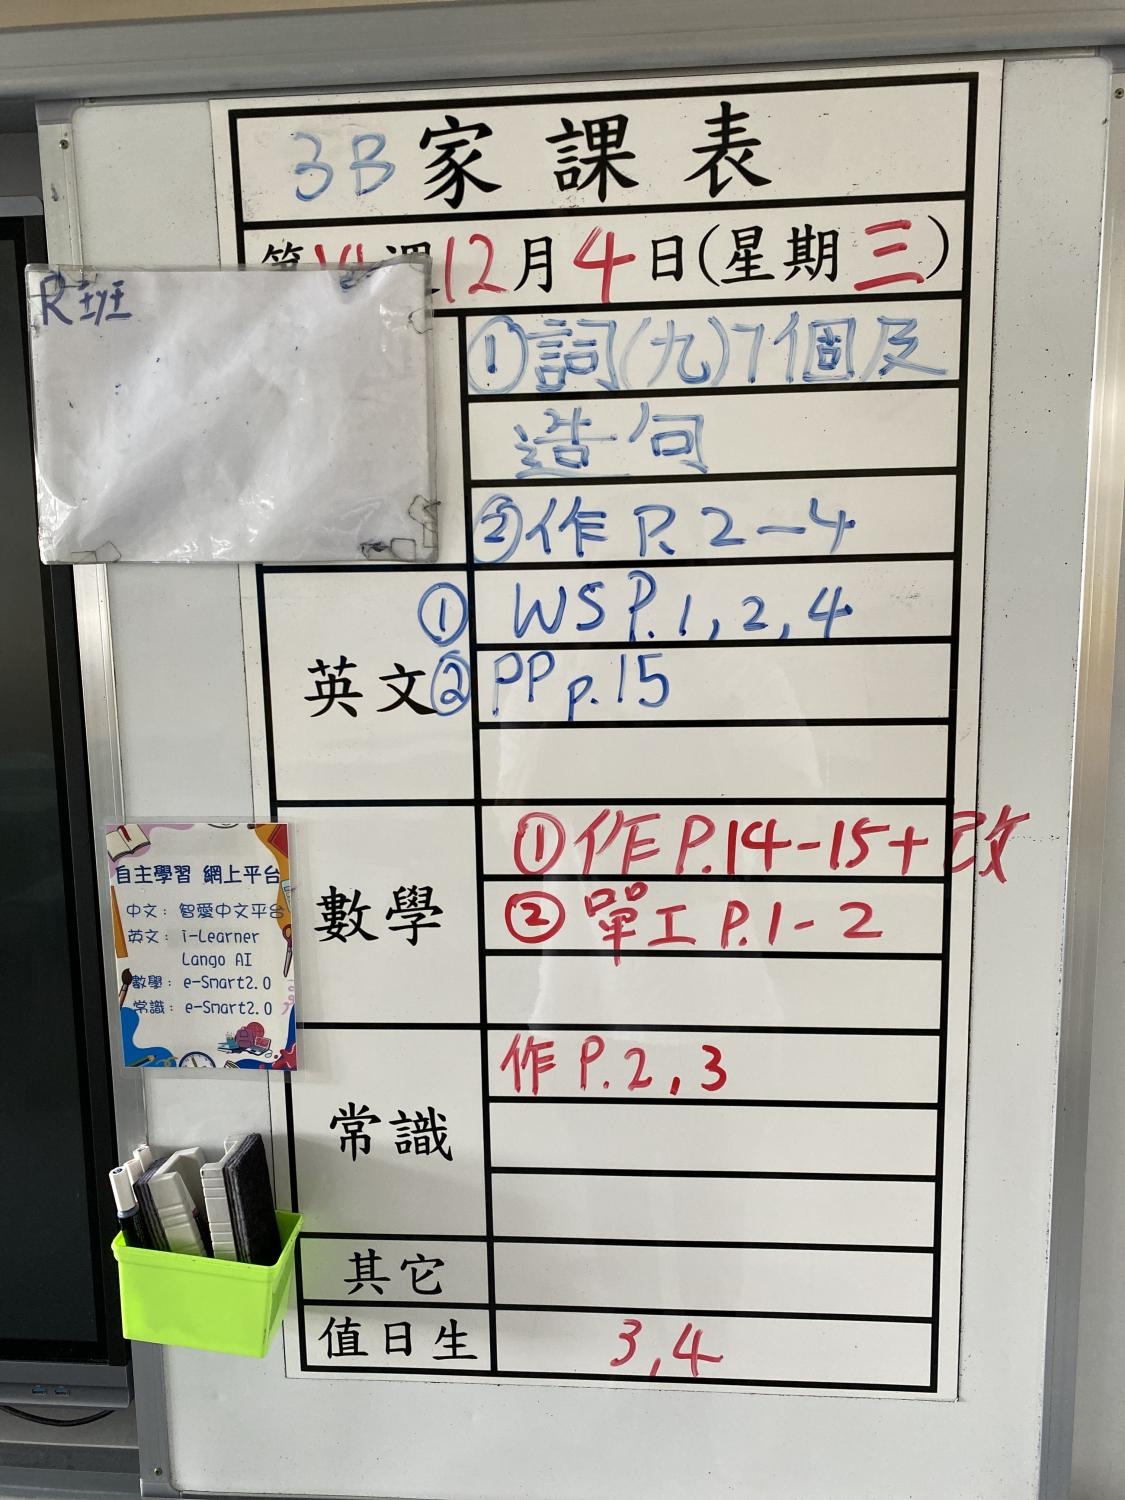 3B 家課表
12月4日(星期三)
R班
①詞(九)7個及
造句
②作 P. 2-4
英文
① WS P.1,2,4
② PP p.15
數學
①作 P.14-15+改
② 單工 P.1-2
常識
作 P.2,3
其它
值日生
3,4
自主學習 網上平台
中文：智愛中文平台
英文：i-Learner
Lango AI
數學：e-Smart2.0
常識：e-Smart2.0